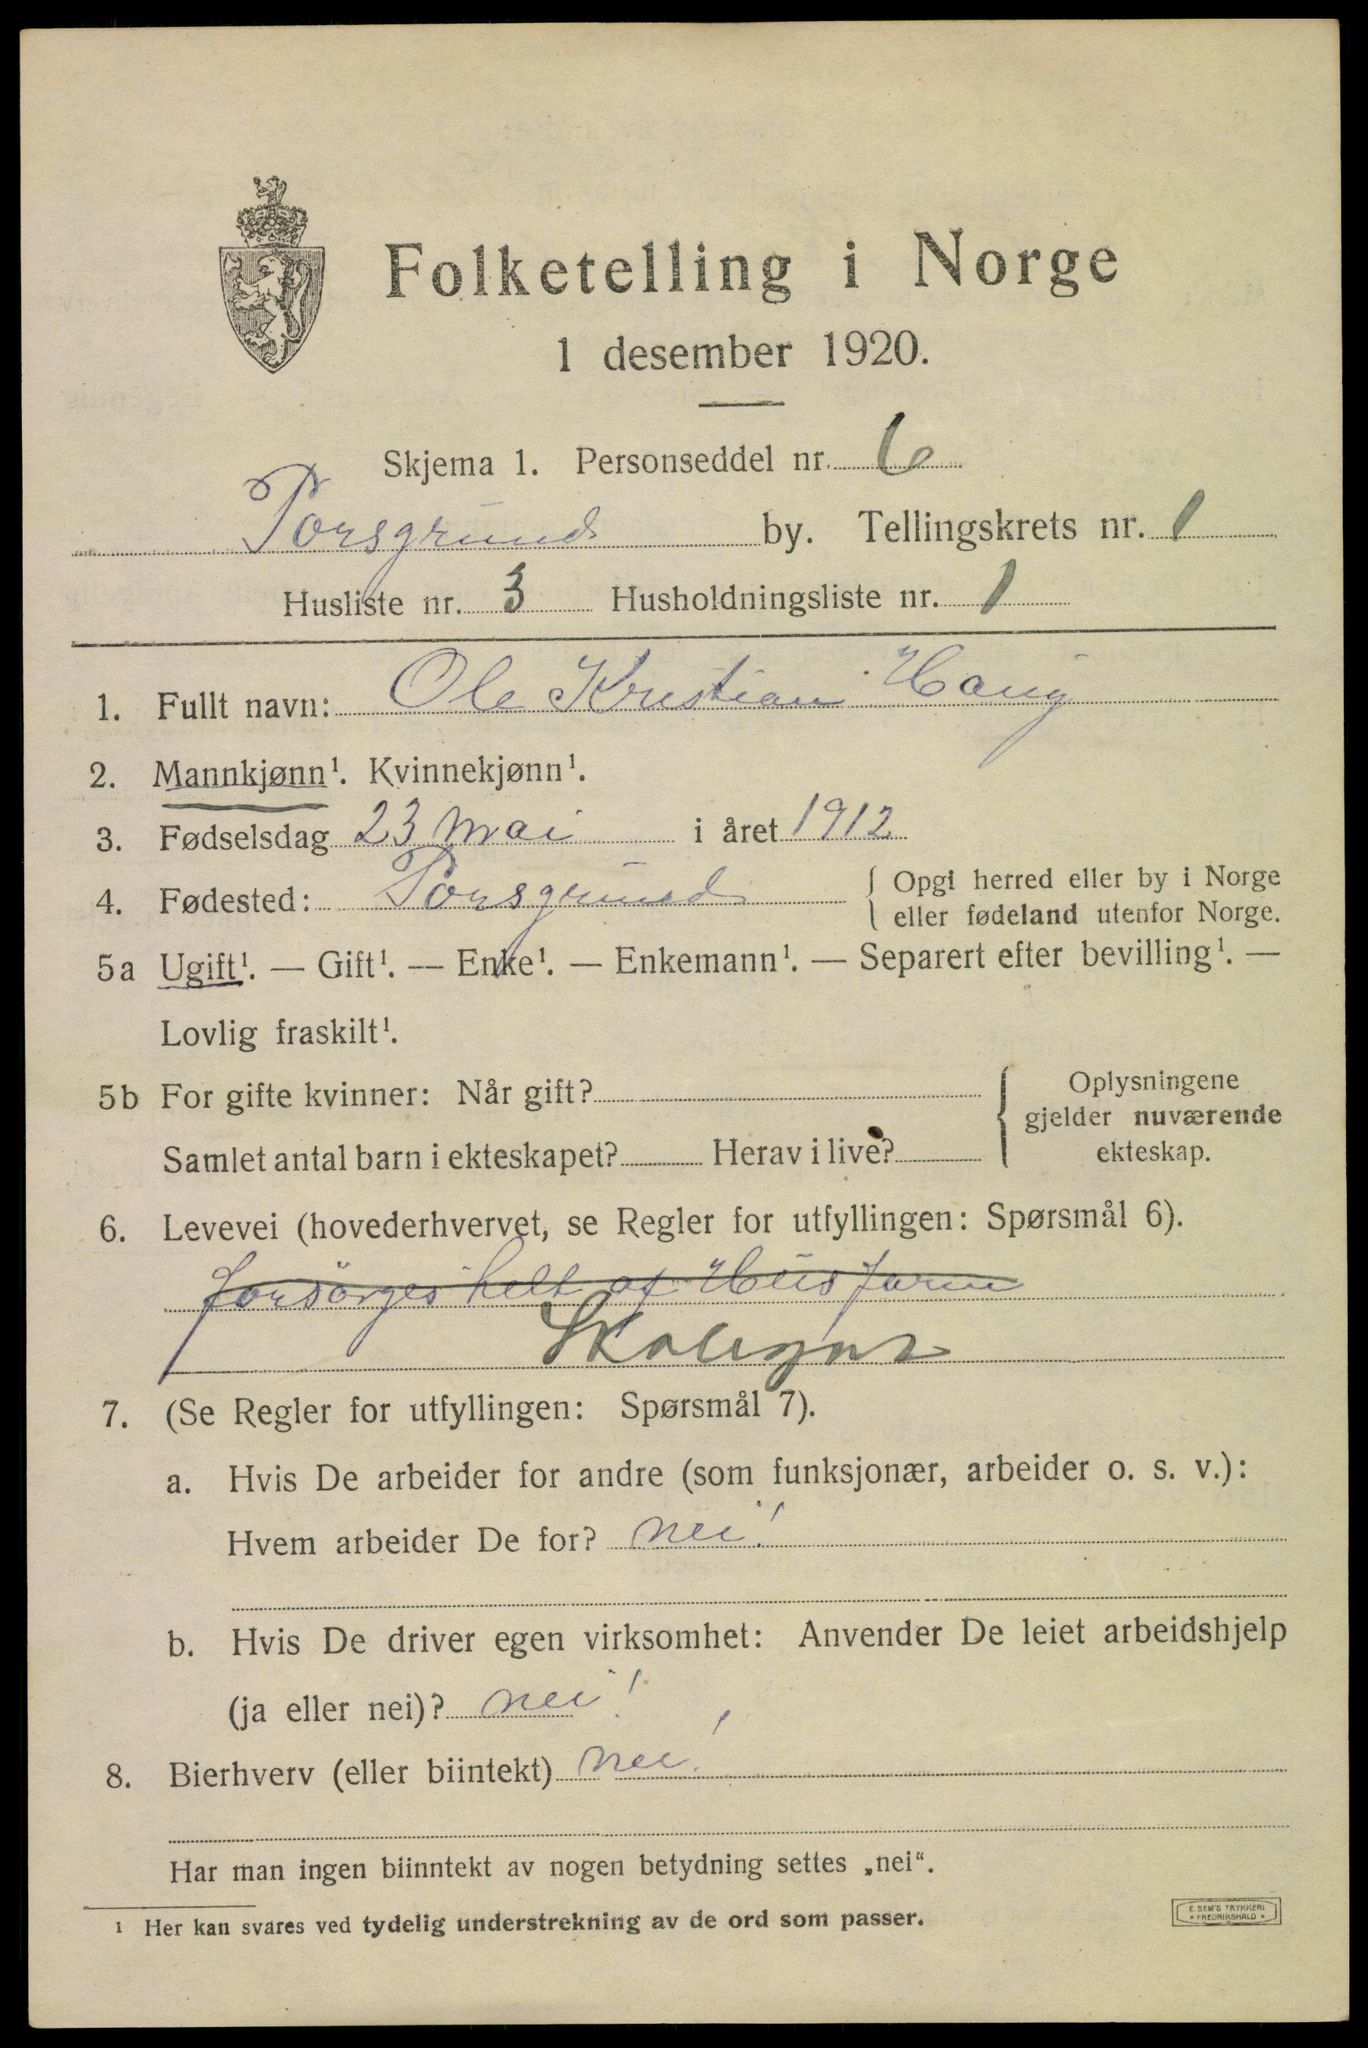 Folketelling i Norge
1 desember 1920.
Skjema 1. Personseddel nr. 6
Porsgrund by. Tellingskrets nr. 1
Husliste nr. 3 Husholdningsliste nr. 1
1. Fullt navn: Ole Kristian Haug
2. Mannkjønn¹. Kvinnekjønn¹.
3. Fødselsdag 23 mai i året 1912
4. Fødested: Porsgrund { Opgi herred eller by i Norge
eller fødeland utenfor Norge.
5a Ugift¹. — Gift¹. — Enke¹. — Enkemann¹. — Separert efter bevilling¹. —
Lovlig fraskilt¹.
5b For gifte kvinner: Når gift? { Oplysningene
gjelder nuværende
Samlet antal barn i ekteskapet? Herav i live? ekteskap.
6. Levevei (hovederhvervet, se Regler for utfyllingen: Spørsmål 6).
forsörges helt af Husfaren
Skolegut
7. (Se Regler for utfyllingen: Spørsmål 7).
a. Hvis De arbeider for andre (som funksjonær, arbeider o. s. v.):
Hvem arbeider De for? nei!
b. Hvis De driver egen virksomhet: Anvender De leiet arbeidshjelp
(ja eller nei)? nei!
8. Bierhverv (eller biintekt) nei!
Har man ingen biinntekt av nogen betydning settes „nei“.
¹ Her kan svares ved tydelig understrekning av de ord som passer.
E. SEM'S TRYKKERI
* FREDRIKSHALD *